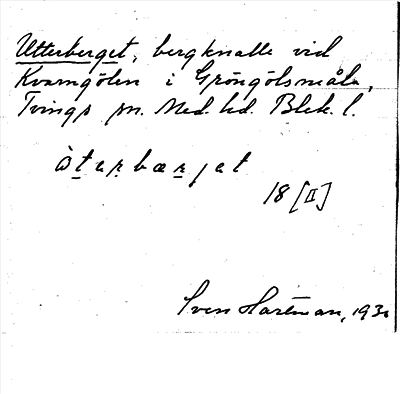 Utterberget, bergknalle vid
Kvarngölen i Gröngölsmåla,
Tvings sn. Med. hd. Blek. l.
18 [II]
Sven Hartman, 193